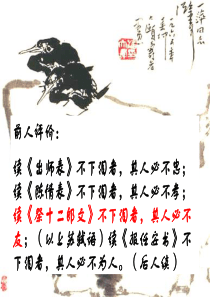 前人评价：
读《出师表》不下泪者，其人必不忠；
读《陈情表》不下泪者，其人必不孝；
读《祭十二郎文》不下泪者，其人必不
友；（以上苏轼语）读《报任安书》不
下泪者，其人必不为人。（后人读）